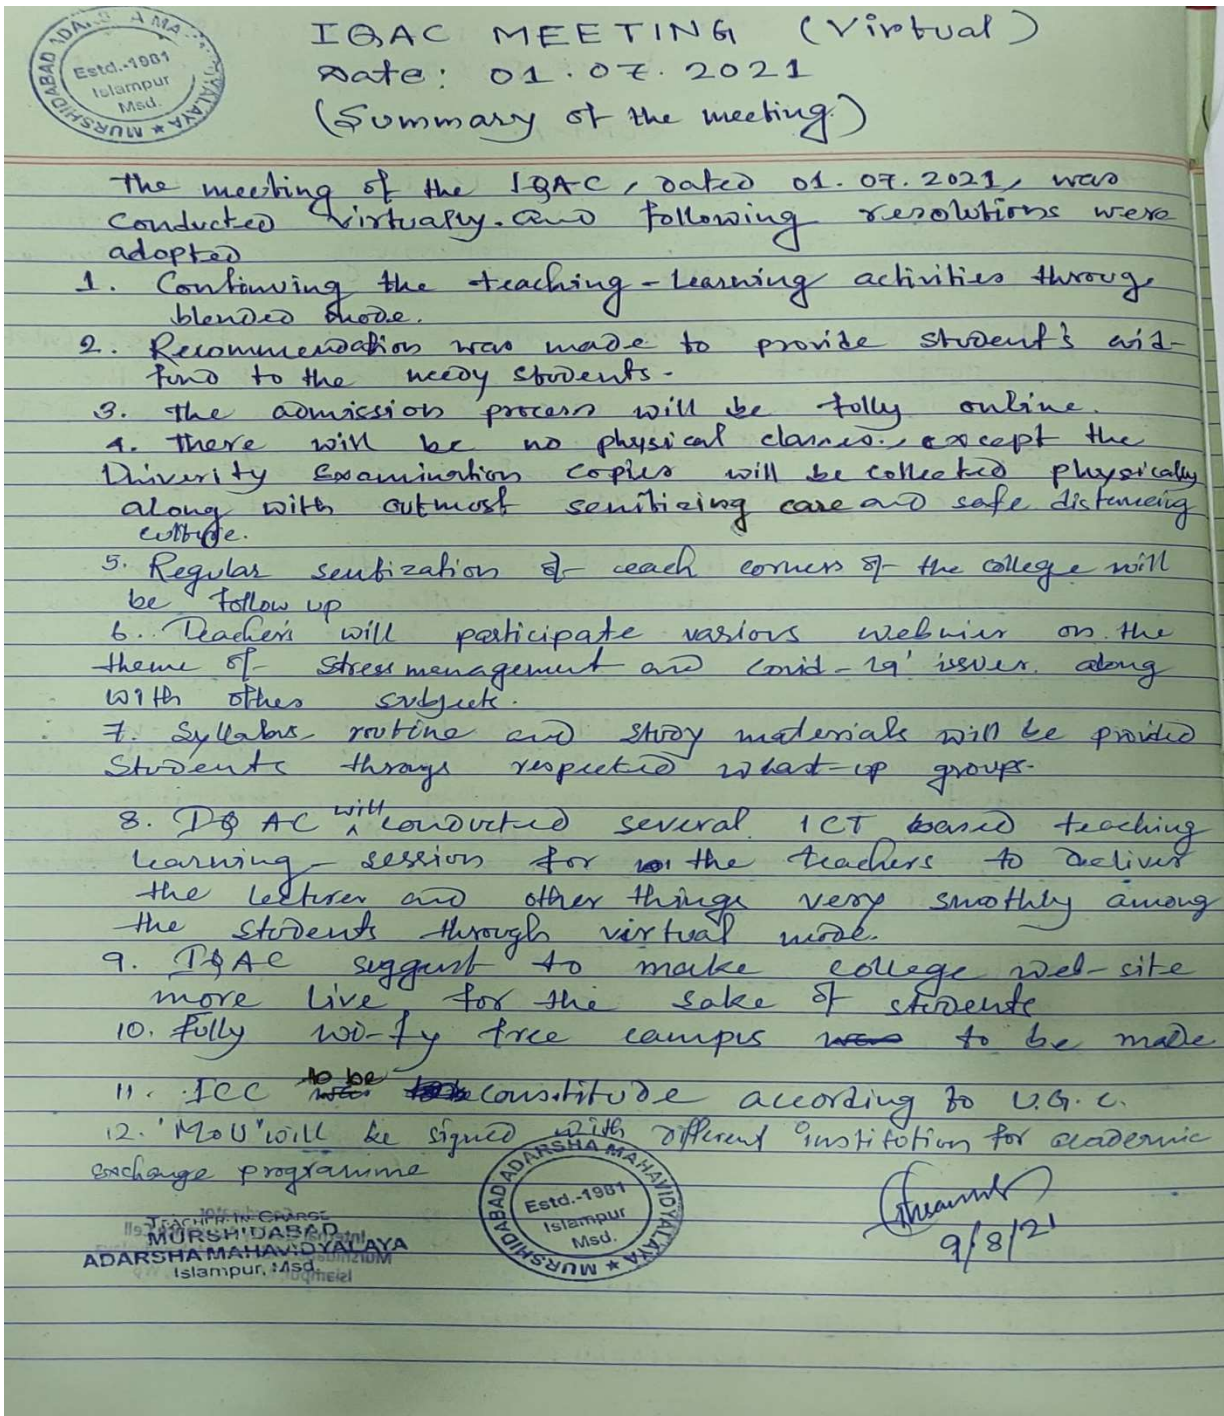 IQAC MEETING (Virtual)
Date: 01.07.2021
(Summary of the meeting)
MURSHIDABAD ADARSHA MAHAVIDYALAYA
Estd.-1981
Islampur
Msd.
The meeting of the IQAC, dated 01.07.2021, was
conducted virtually. and following resolutions were
adopted
1. Continuing the teaching - learning activities throug
blended mode.
2. Recommendation was made to provide student's aid-
fund to the needy students.
3. The admission process will be fully online.
4. There will be no physical classes., except the
Univerity Examination copies will be collected physically
along with outmost senitizing care and safe distancing
culture.
5. Regular senitization of each corners of the college will
be follow up
6. Teachers will participate various webnier on the
theme of stress management and covid-19' issues. along
with other subject.
7. Syllabus routine and study materials will be provided
Students throug respected what-up groups.
8. IQAC will conducted several ICT based teaching
learning - session for the teachers to deliver
the lecturer and other things very smothly among
the students through virtual mode.
9. IQAC suggest to make college web-site
more live for the sake of students
10. fully wi-fy free campus to be made
11. ICC to be constitude according to U.G.C.
12. 'MoU' will be signed with different institution for academic
exchange programme
MURSHIDABAD ADARSHA MAHAVIDYALAYA
Estd.-1981
Islampur
Msd.
9/8/21
TEACHER-IN-CHARGE
MURSHIDABAD
ADARSHA MAHAVIDYALAYA
Islampur, Msd.